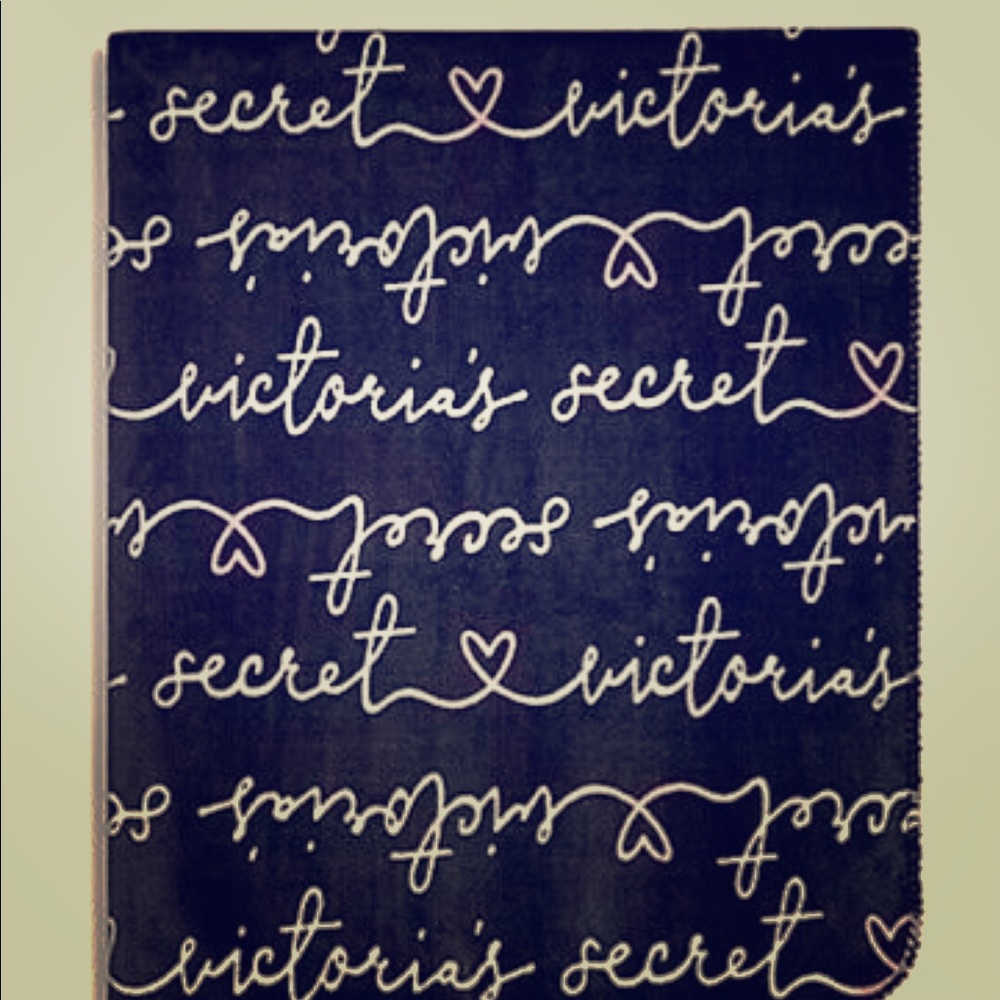 secret victoria's
victoria's secret
victoria's secret
secret victoria's
secret victoria's
victoria's secret
victoria's secret